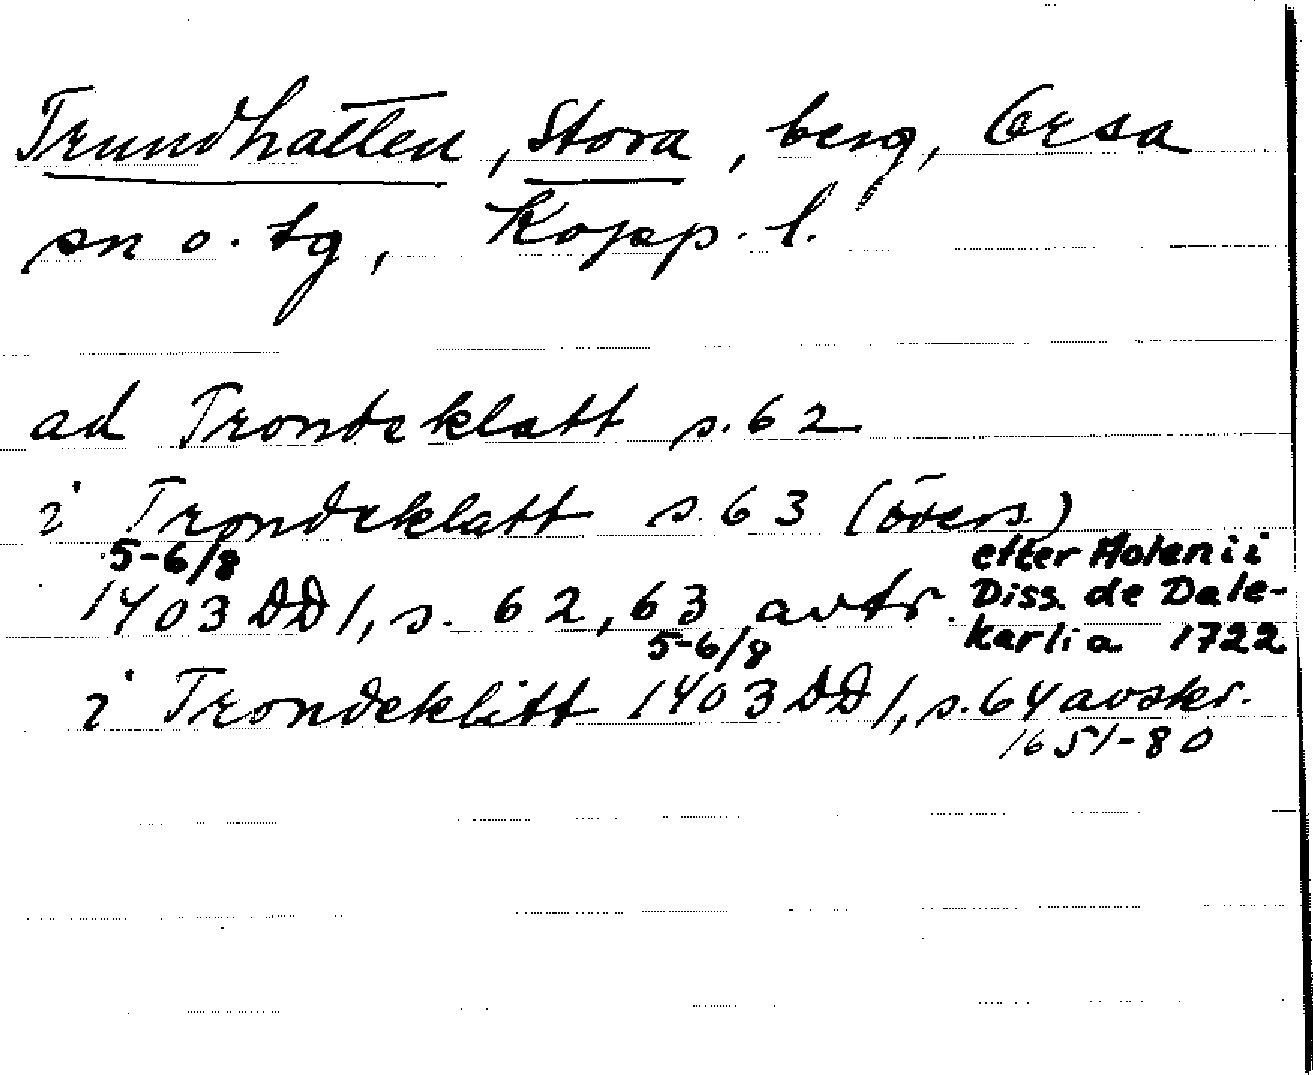 Trundhatten, Stora, berg, Orsa
sn o. tg, Kopp. l.
ad Trondeklatt s. 62
i Trondeklatt s. 63 (övers.)
5-6/8
1403 DD 1, s. 62, 63 avtr. efter Holenii Diss. de Dale-karlia 1722
5-6/8
i Trondeklitt 1403 DD 1, s. 64 avskr.
1651-80